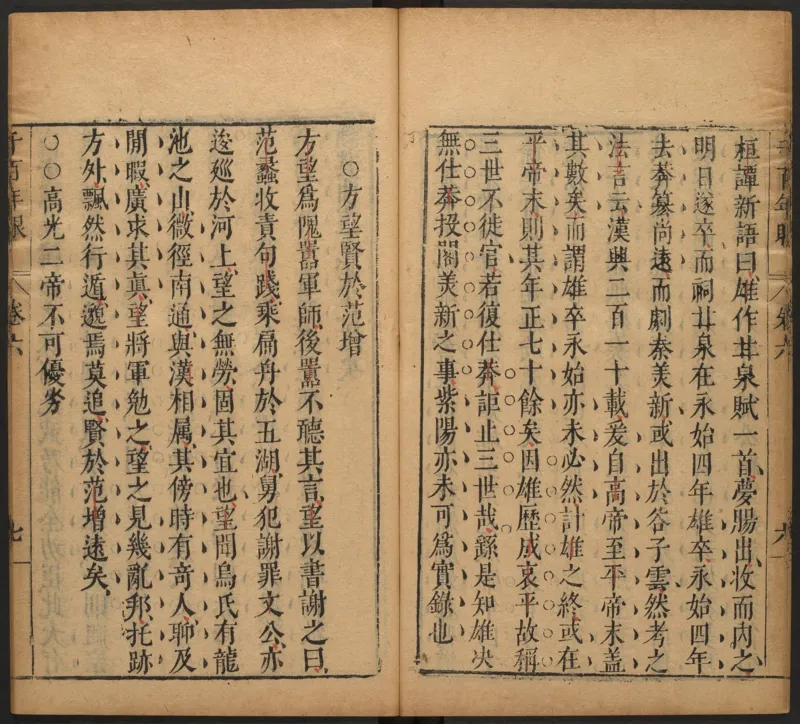 桓譚新語曰雄作甘泉賦一首夢腸出收而內之
明日遂卒而祠甘泉在永始四年雄卒永始四年
去莽篡尚遠而劇秦美新或出於谷子雲然考之
法言云漢興二百一十載爰自高帝至平帝末蓋
其數矣而謂雄卒永始亦未必然計雄之終或在
平帝末則其年正七十餘矣因雄歷成哀平故稱
三世不徙官若復仕莽詎止三世哉繇是知雄决
無仕莽投閣美新之事紫陽亦未可爲實錄也
千百年眼 卷六 六
○方望賢於范增
方望爲隗囂軍師後囂不聽其言望以書謝之曰
范蠡收責句踐乘扁舟於五湖舅犯謝罪文公亦
逡廵於河上望之無勞固其宜也望聞烏氏有龍
池之山微徑南通與漢相属其傍時有奇人聊及
閒暇廣求其眞望將軍勉之望之見幾亂邦托跡
方外飄然行遁邈焉莫追賢於范增遠矣
○○高光二帝不可優劣
千百年眼 卷六 七